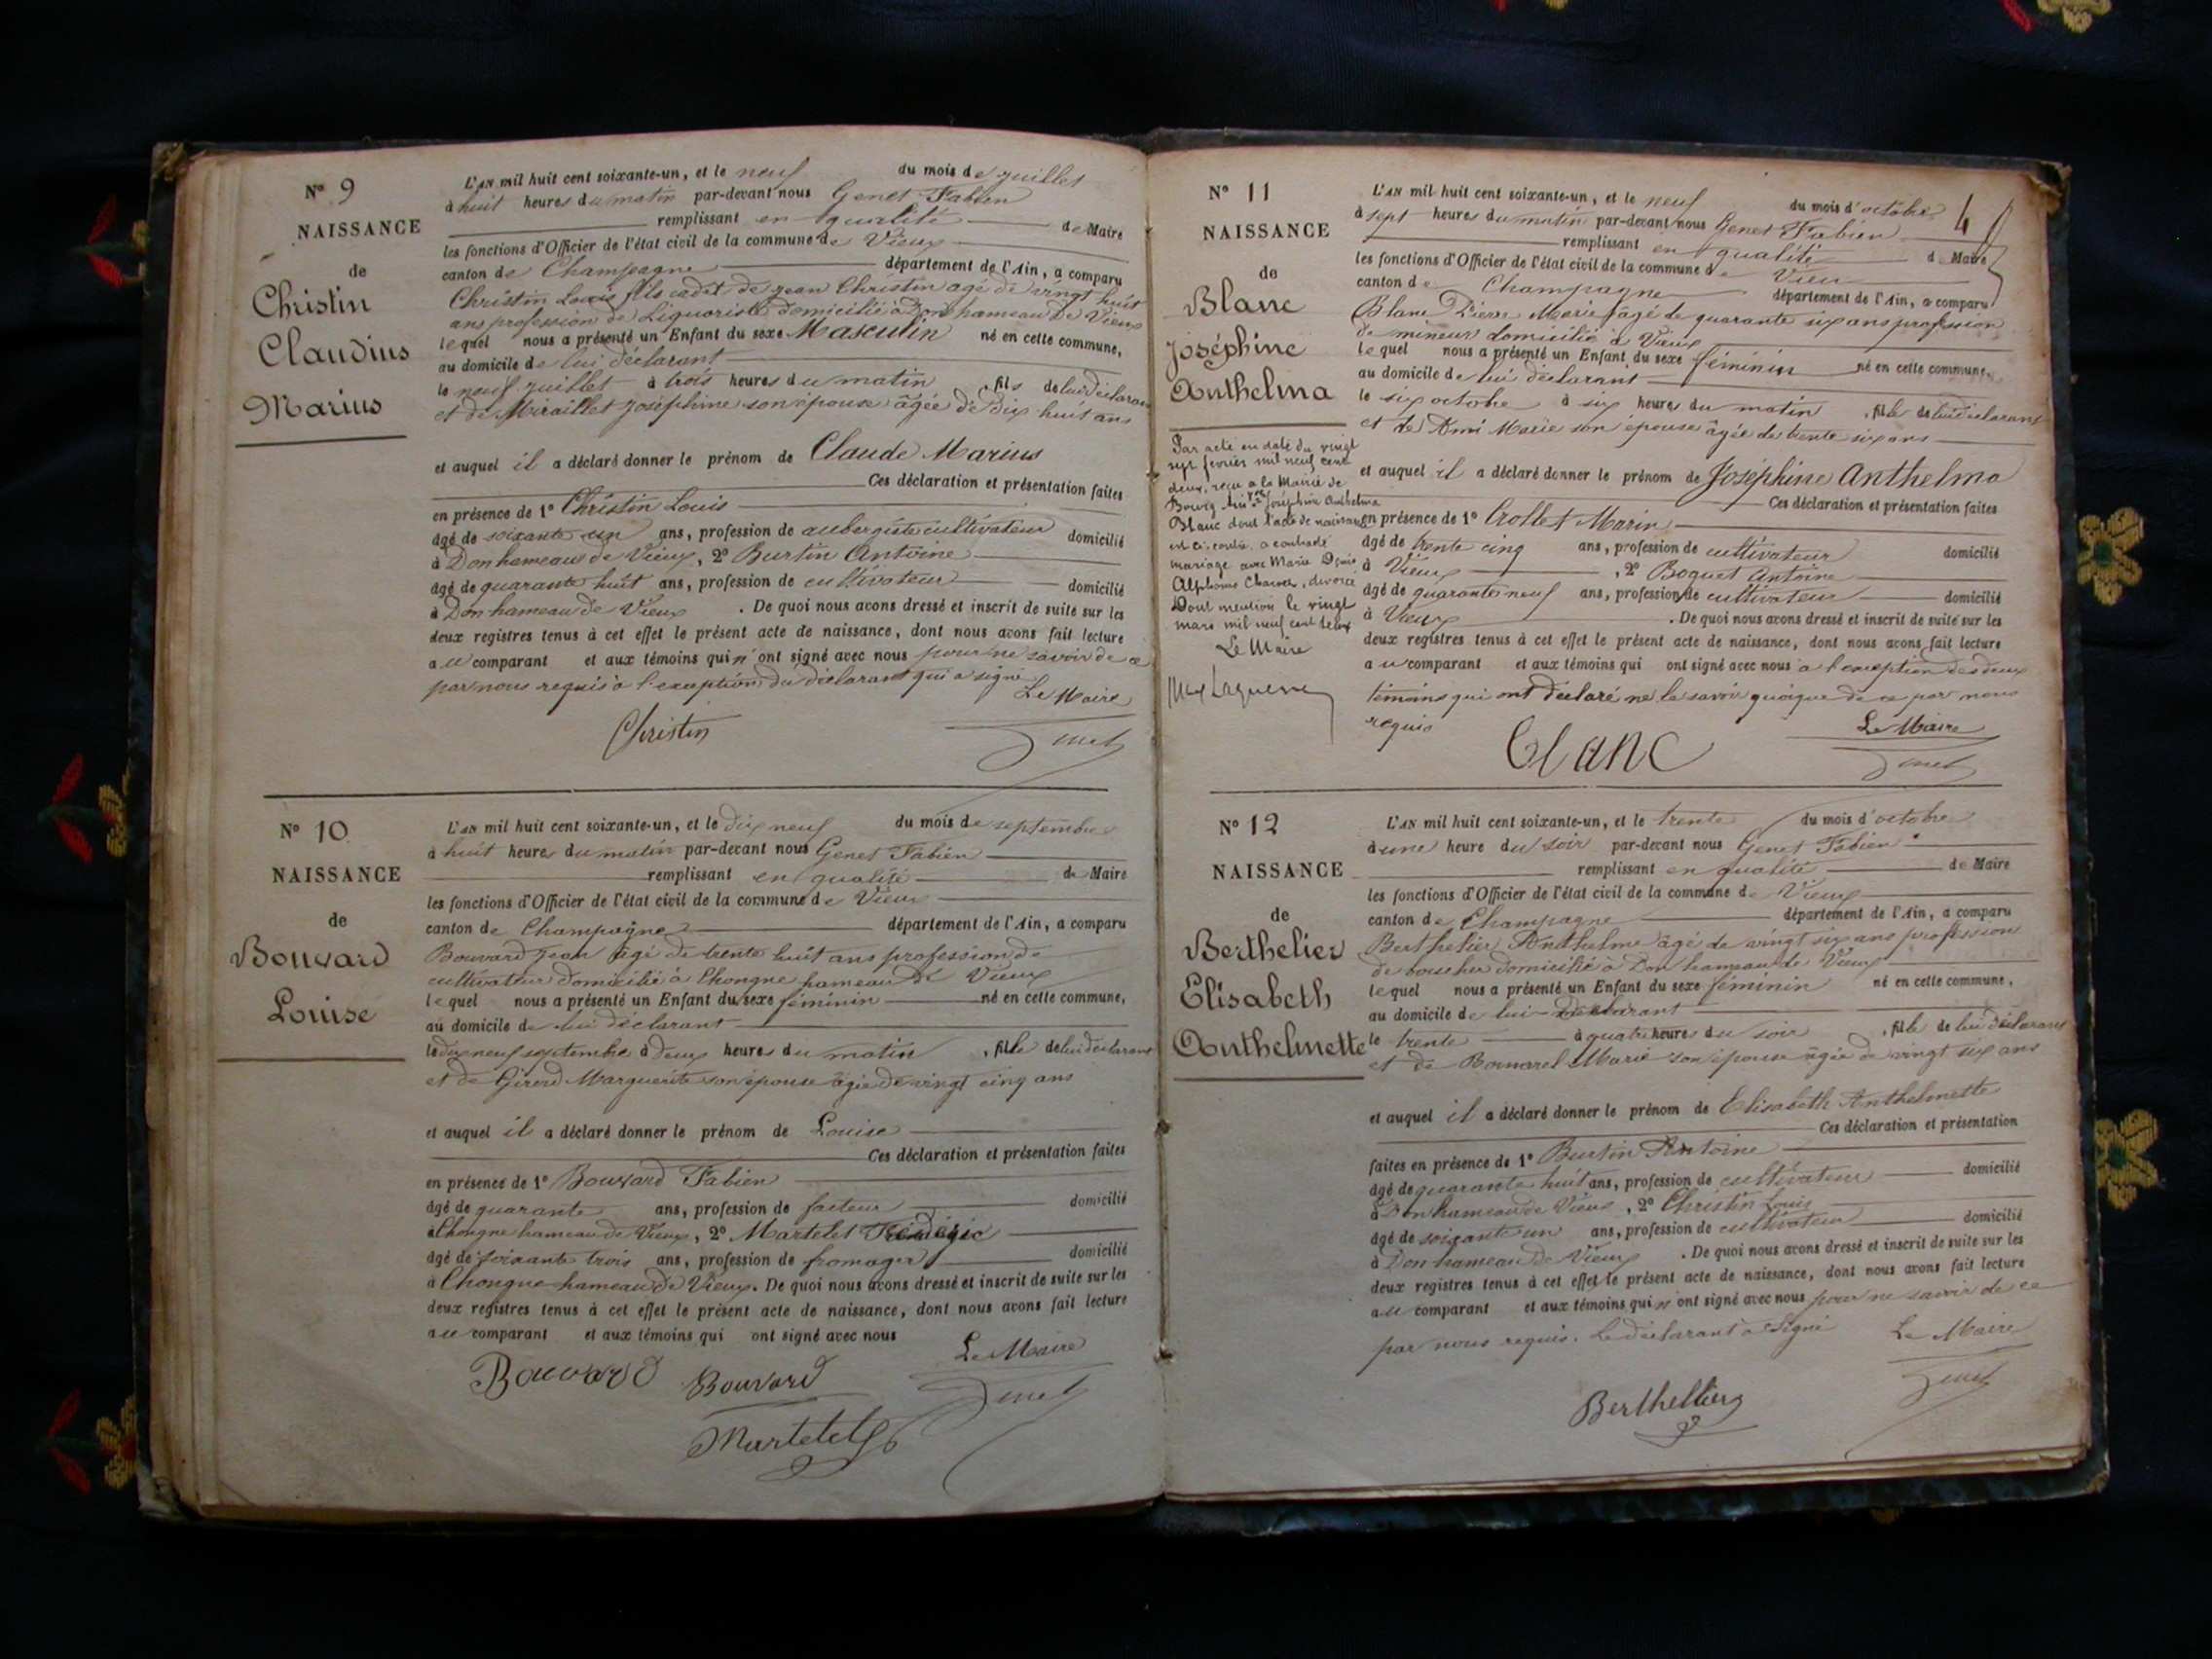 N° 9
NAISSANCE
de
Christin
Claudius
Marius
L'AN mil huit cent soixante-un, et le neuf du mois de juillet
à huit heures du matin par-devant nous Genet Fabien
remplissant en qualité de Maire
les fonctions d'Officier de l'état civil de la commune de Vieux
canton de Champagne département de l'Ain, a comparu
Christin Louis fils cadet de Jean Christin agé de vingt huit
ans profession de Liquoriste domicilié à Don hameau de Vieux
lequel nous a présenté un Enfant du sexe Masculin né en cette commune,
au domicile de lui déclarant
le neuf juillet à trois heures du matin, fils de lui déclarant
et de Miraillet Joséphine son épouse âgée de dix huit ans
et auquel il a déclaré donner le prénom de Claude Marius
Ces déclaration et présentation faites
en présence de 1° Christin Louis
âgé de soixante un ans, profession de aubergiste cultivateur domicilié
à Don hameau de Vieux, 2° Burtin Antoine
âgé de quarante huit ans, profession de cultivateur domicilié
à Don hameau de Vieux. De quoi nous avons dressé et inscrit de suite sur les
deux registres tenus à cet effet le présent acte de naissance, dont nous avons fait lecture
au comparant et aux témoins qui n'ont signé avec nous pour ne savoir de ce
par nous requis à l'exception du déclarant qui a signé
Le Maire
Christin
Genet
N° 10
NAISSANCE
de
Bouvard
Louise
L'AN mil huit cent soixante-un, et le dix neuf du mois de septembre
à huit heures du matin par-devant nous Genet Fabien
remplissant en qualité de Maire
les fonctions d'Officier de l'état civil de la commune de Vieux
canton de Champagne département de l'Ain, a comparu
Bouvard Jean âgé de trente huit ans profession de
cultivateur domicilié à Chongne hameau de Vieux
lequel nous a présenté un Enfant du sexe féminin né en cette commune,
au domicile de lui déclarant
le dix neuf septembre à deux heures du matin, fille de lui déclarant
et de Girerd Marguerite son épouse âgée de vingt cinq ans
et auquel il a déclaré donner le prénom de Louise
Ces déclaration et présentation faites
en présence de 1° Bouvard Fabien
âgé de quarante ans, profession de facteur domicilié
à Chongne hameau de Vieux, 2° Martelet Frédéric
âgé de soixante trois ans, profession de fromager domicilié
à Chongne hameau de Vieux. De quoi nous avons dressé et inscrit de suite sur les
deux registres tenus à cet effet le présent acte de naissance, dont nous avons fait lecture
au comparant et aux témoins qui ont signé avec nous
Le Maire
Bouvard Bouvard
Genet
Martelet
N° 11
NAISSANCE
de
Blanc
Joséphine
Anthelma
Par acte en date du vingt
sept février mil neuf cent
deux, reçu à la Mairie de
Joséphine Anthelma
Blanc dont l'acte de naissance
est ci-contre, a contracté
mariage avec Marie Denis
Alphonse divorcé
Dont mention le vingt
mars mil neuf cent deux
Le Maire
L'AN mil huit cent soixante-un, et le neuf du mois d'octobre
à sept heures du matin par-devant nous Genet Fabien
remplissant en qualité d Maire
les fonctions d'Officier de l'état civil de la commune de Vieu
canton de Champagne département de l'Ain, a comparu
Blanc Pierre Marie âgé de quarante six ans profession
de mineur domicilié à Vieux
lequel nous a présenté un Enfant du sexe féminin né en cette commune,
au domicile de lui déclarant
le six octobre à six heures du matin, fille de lui déclarant
et de Ami Marie son épouse âgée de trente six ans
et auquel il a déclaré donner le prénom de Joséphine Anthelma
Ces déclaration et présentation faites
en présence de 1° Crollet Marin
âgé de trente cinq ans, profession de cultivateur domicilié
à Vieux, 2° Boquet Antoine
âgé de quarante neuf ans, profession de cultivateur domicilié
à Vieux. De quoi nous avons dressé et inscrit de suite sur les
deux registres tenus à cet effet le présent acte de naissance, dont nous avons fait lecture
au comparant et aux témoins qui ont signé avec nous à l'exception des deux
témoins qui ont déclaré ne le savoir quoique de ce par nous
requis
Le Maire
Blanc
Genet
N° 12
NAISSANCE
de
Berthelier
Elisabeth
Anthelmette
L'AN mil huit cent soixante-un, et le trente du mois d'octobre
à une heure du soir par-devant nous Genet Fabien
remplissant en qualité de Maire
les fonctions d'Officier de l'état civil de la commune de Vieux
canton de Champagne département de l'Ain, a comparu
Berthelier Anthelme âgé de vingt six ans profession
de boucher domicilié à Don hameau de Vieux
lequel nous a présenté un Enfant du sexe féminin né en cette commune,
au domicile de lui déclarant
le trente à quatre heures du soir, fille de lui déclarant
et de Bornarel Marie son épouse âgée de vingt six ans
et auquel il a déclaré donner le prénom de Elisabeth Anthelmette
Ces déclaration et présentation
faites en présence de 1° Burtin Antoine
âgé de quarante huit ans, profession de cultivateur domicilié
à Don hameau de Vieux, 2° Christin Louis
âgé de soixante un ans, profession de cultivateur domicilié
à Don hameau de Vieux. De quoi nous avons dressé et inscrit de suite sur les
deux registres tenus à cet effet le présent acte de naissance, dont nous avons fait lecture
au comparant et aux témoins qui n'ont signé avec nous pour ne savoir de ce
par nous requis. Le déclarant a signé
Le Maire
Genet
Berthellier